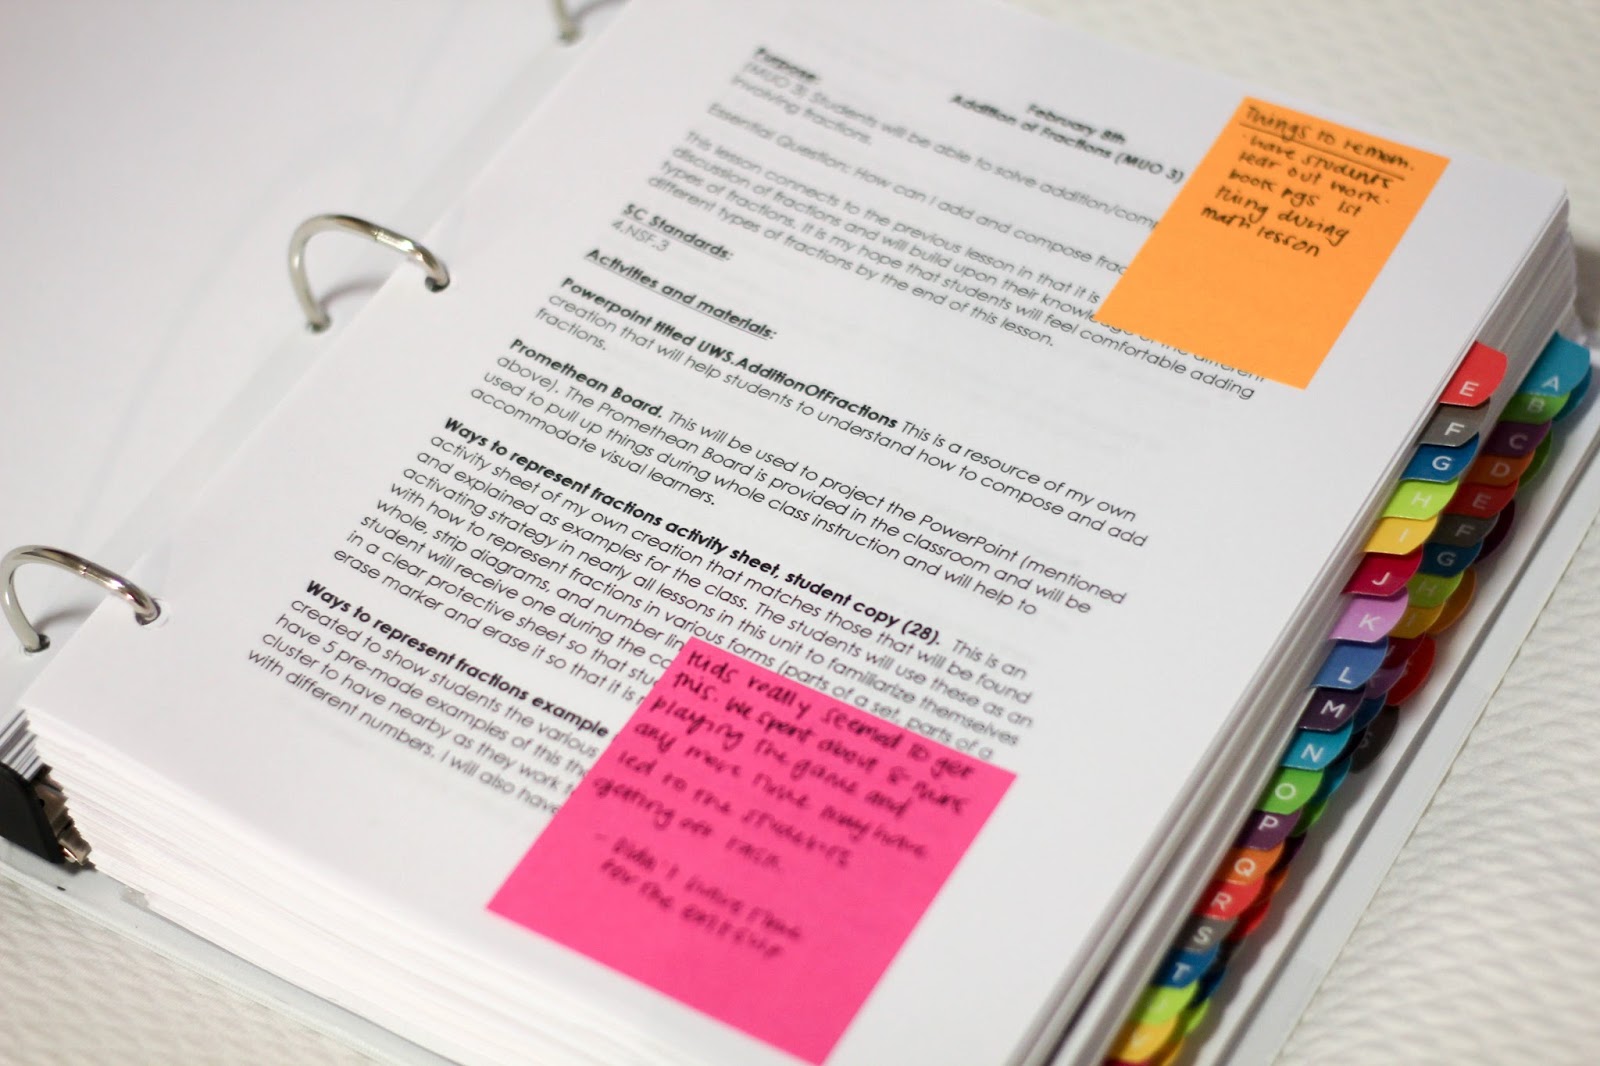 February 8th
Addition of Fractions (MUO 3)
Purpose
(MUO 3) Students will be able to solve addition/comp
involving fractions.
Essential Question: How can I add and compose frac
This lesson connects to the previous lesson in that it is
discussion of fractions and will build upon their knowledge of the different
types of fractions. It is my hope that students will feel comfortable adding
different types of fractions by the end of this lesson.
SC Standards:
4.NSF.3
Activities and materials:
Powerpoint titled UWS.AdditionOfFractions This is a resource of my own
creation that will help students to understand how to compose and add
fractions.
Promethean Board. This will be used to project the PowerPoint (mentioned
above). The Promethean Board is provided in the classroom and will be
used to pull up things during whole class instruction and will help to
accommodate visual learners.
Ways to represent fractions activity sheet, student copy (28). This is an
activity sheet of my own creation that matches those that will be found
and explained as examples for the class. The students will use these as an
activating strategy in nearly all lessons in this unit to familiarize themselves
with how to represent fractions in various forms (parts of a set, parts of a
whole, strip diagrams, and number lin
student will receive one during the co
in a clear protective sheet so that stu
erase marker and erase it so that it is r
Ways to represent fractions example
created to show students the various
have 5 pre-made examples of this tha
cluster to have nearby as they work t
with different numbers. I will also have
Things to remem.
· have students
tear out work-
book pgs 1st
thing during
math lesson
Kids really seemed to get
this. We spent about 8 mins
playing the game and
any more time may have
led to the students
getting off task.
- Didn't have time
for the
E
F
G
H
I
J
K
L
M
N
O
P
Q
R
S
T
A
B
C
D
E
F
G
H